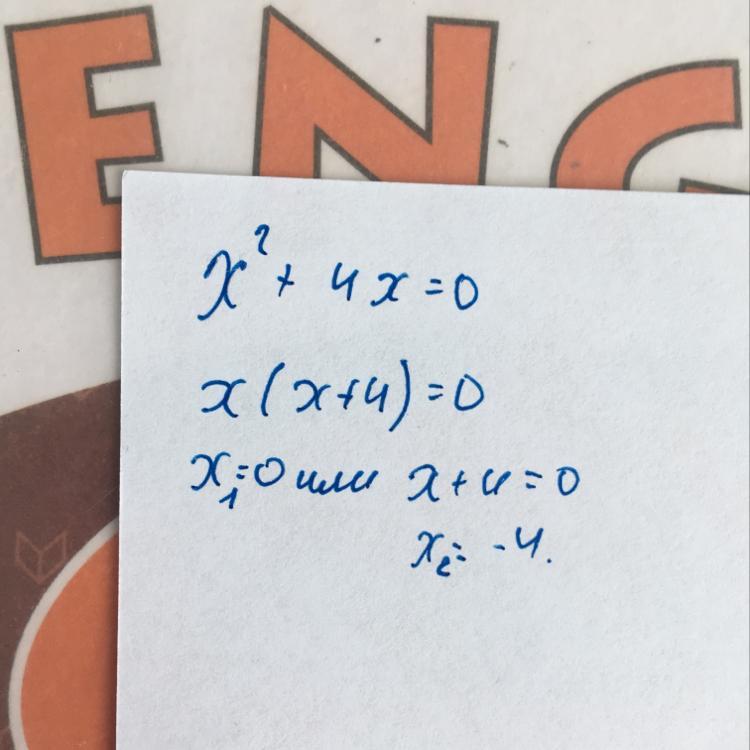 ENG
x² + 4x = 0
x(x+4) = 0
x₁ = 0 или x + 4 = 0
x₂ = -4.